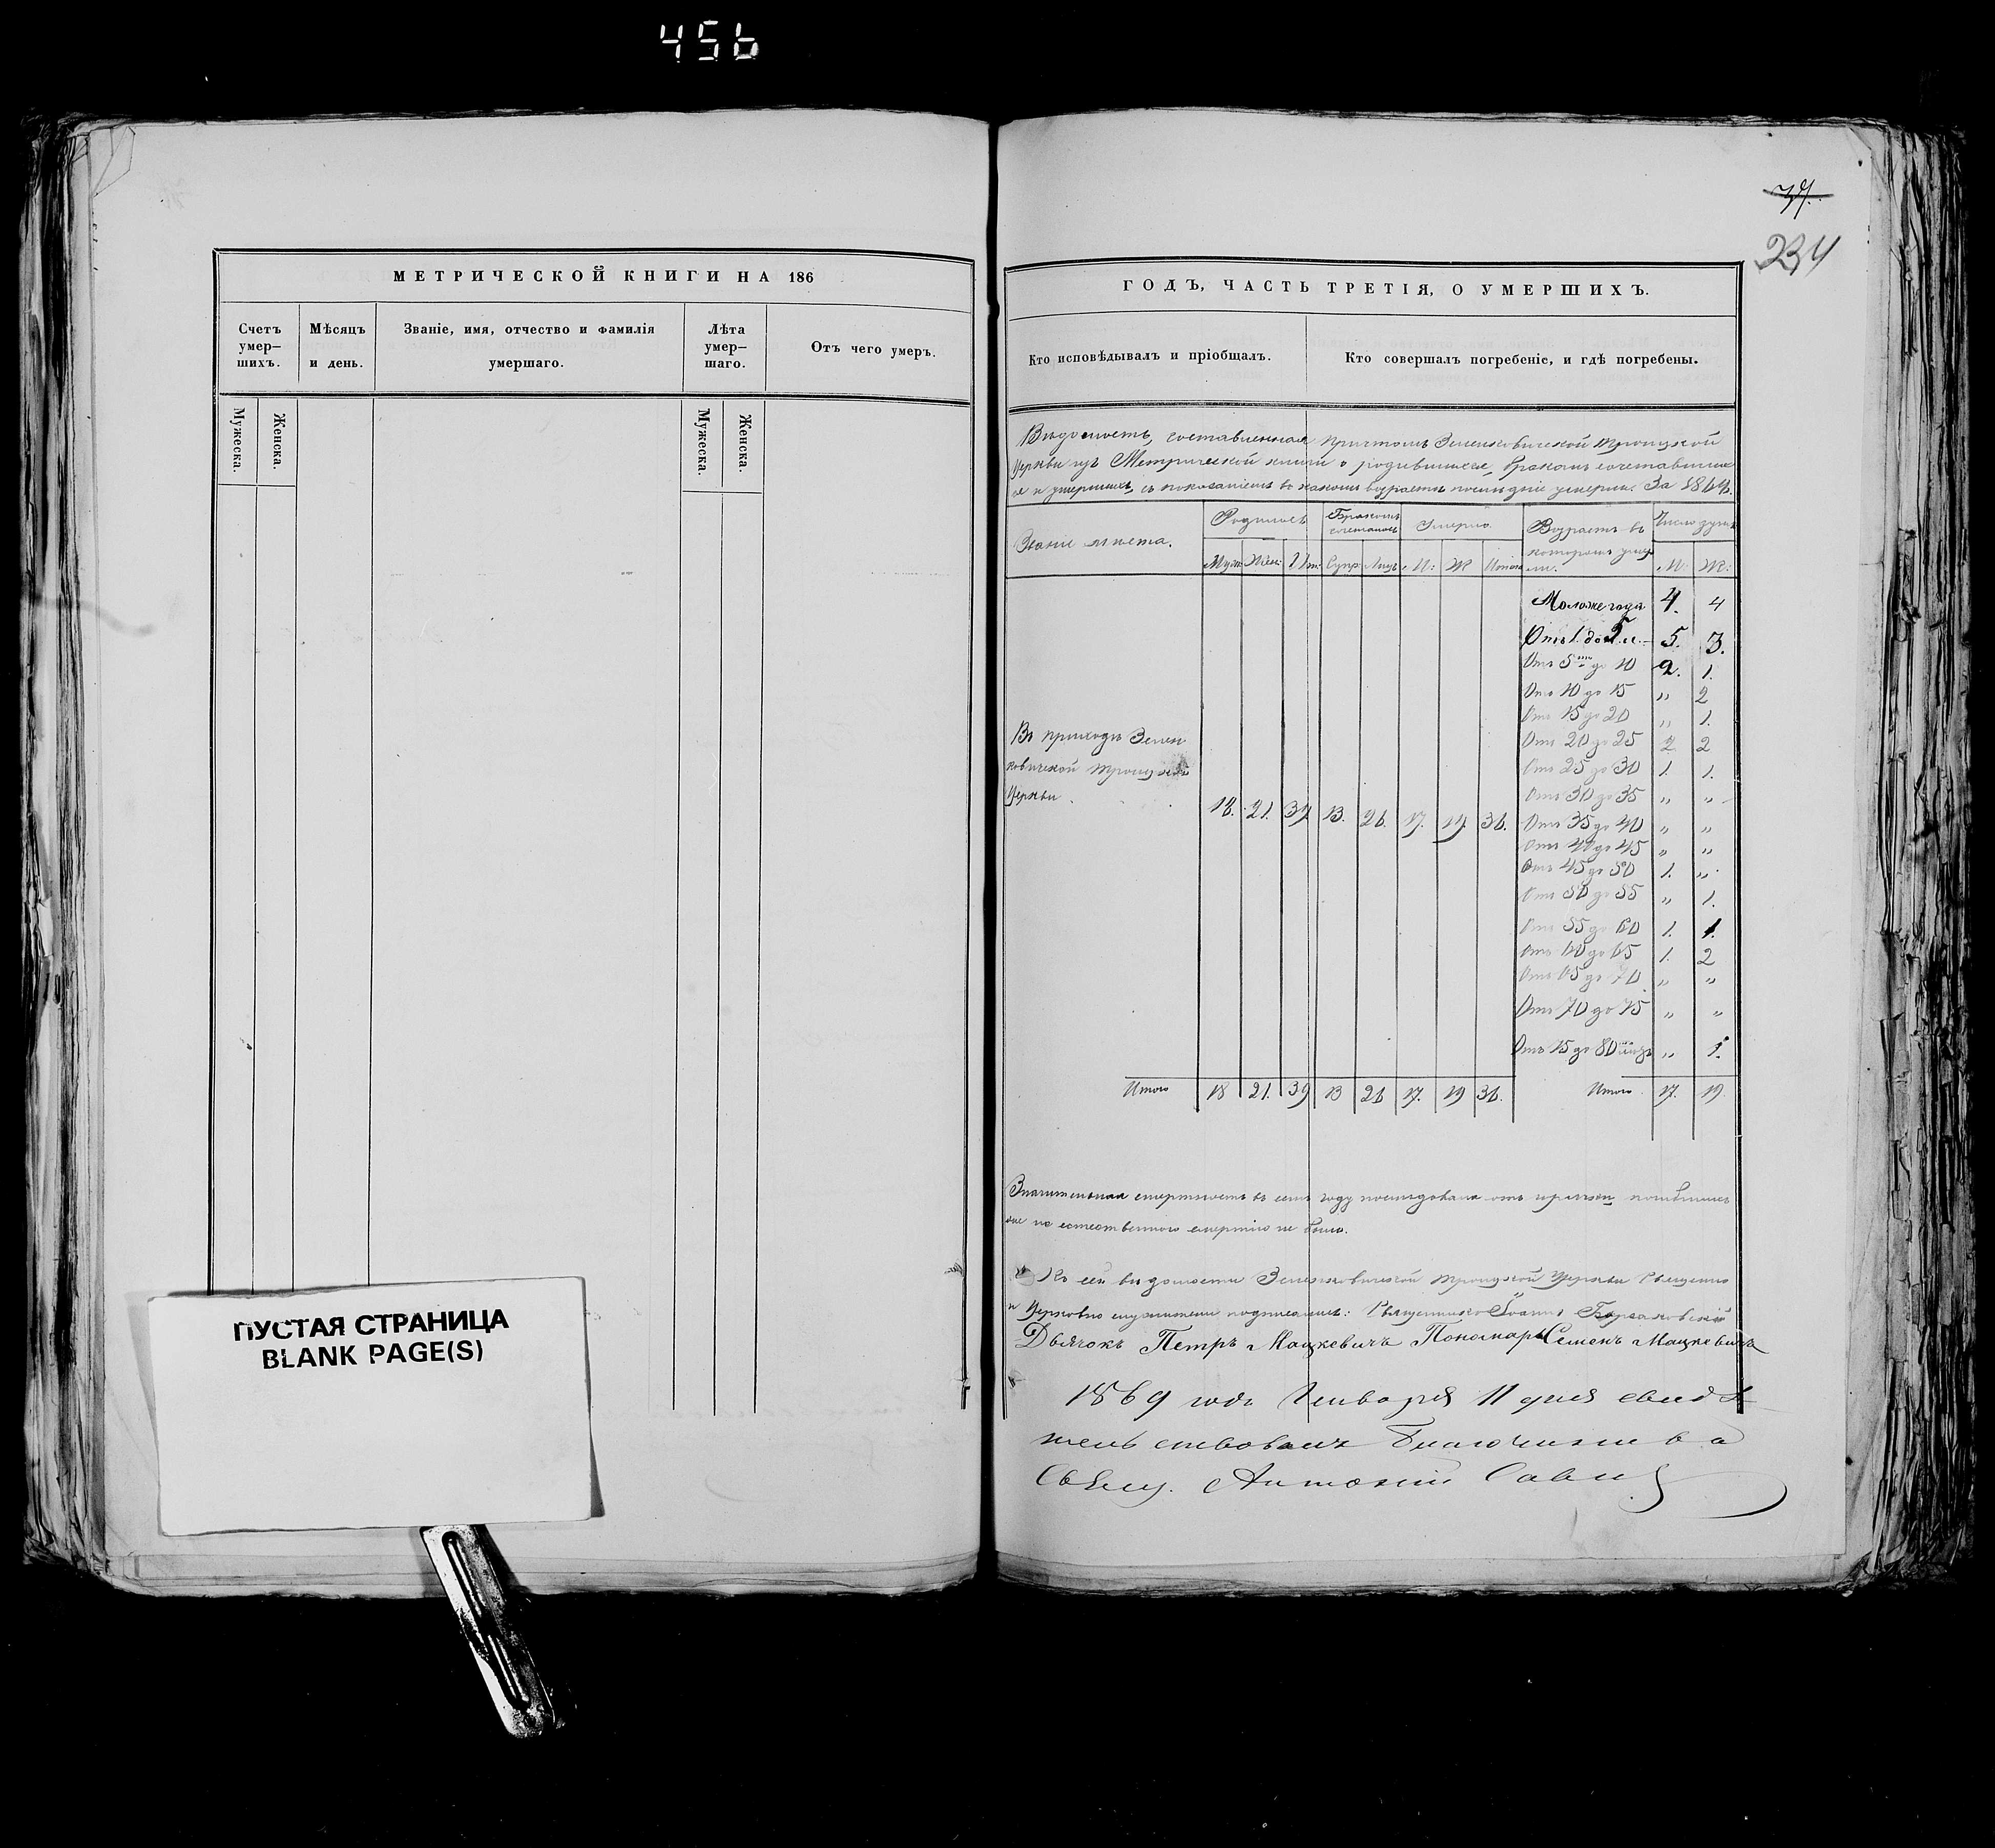 456
37.
234
МЕТРИЧЕСКОЙ КНИГИ НА 186
Счетъ умер— шихъ.
Мѣсяцъ и день.
Званіе, имя, отчество и фамилія умершаго.
Лѣта умер— шаго.
Отъ чего умеръ.
Мужеска.
Женска.
Мужеска.
Женска.
ПУСТАЯ СТРАНИЦА
BLANK PAGE(S)
ГОДЪ, ЧАСТЬ ТРЕТІЯ, О УМЕРШИХЪ.
Кто исповѣдывалъ и пріобщалъ.
Кто совершалъ погребеніе, и гдѣ погребены.
Вѣдомость, составленная причтомъ Зеленковичской Троицкой
Церкви изъ Метрической книги о родившихся, бракомъ сочетавших
ся и умершихъ, съ показаніемъ въ какомъ возрастѣ послѣдніе умерли. За
Званіе мѣста.
Родилось
Бракомъ сочеталось
Умерло.
Возрастъ въ которомъ умер ли.
Число душъ
Муж: Жен: Ит: Супр: Лицъ М: Ж Итого М: Ж:
Моложе года 4. 4
Отъ 1. до 5. л. 5. 3.
Отъ 5 до 10 2. 1.
Отъ 10 до 15 „ 2
Отъ 15 до 20 „ 1.
Отъ 20 до 25 2 2
Отъ 25 до 30 1. 1.
Отъ 30 до 35 „ „
Отъ 35 до 40 „ „
Отъ 40 до 45 „ „
Отъ 45 до 50 1. „
Отъ 50 до 55 „ 1.
Отъ 55 до 60 1. 1.
Отъ 60 до 65 1. 2
Отъ 65 до 70 „ „
Отъ 70 до 75 „ „
Отъ 75 до 80 „ 1.
Въ приходѣ Зелен
ковичской Троицкой
Церкви
18. 21. 39 13. 26. 17. 19. 36.
Итого 18 21. 39 13 26 17. 19 36. Итого 17. 19
Значительная смертность въ семъ году послѣдовала отъ
не естественною смертію не было.
Къ сей вѣдомости Зеленковичской Троицкой Церкви Священно
и Церковно служители подписались: Священникъ Іоаннъ
Дьячокъ Петръ Мацкевичъ Пономарь Семенъ Мацкевичъ
1869 года Января 11 дня свидѣ
тельствовалъ Благочинный
Свящ. Антоній Савич